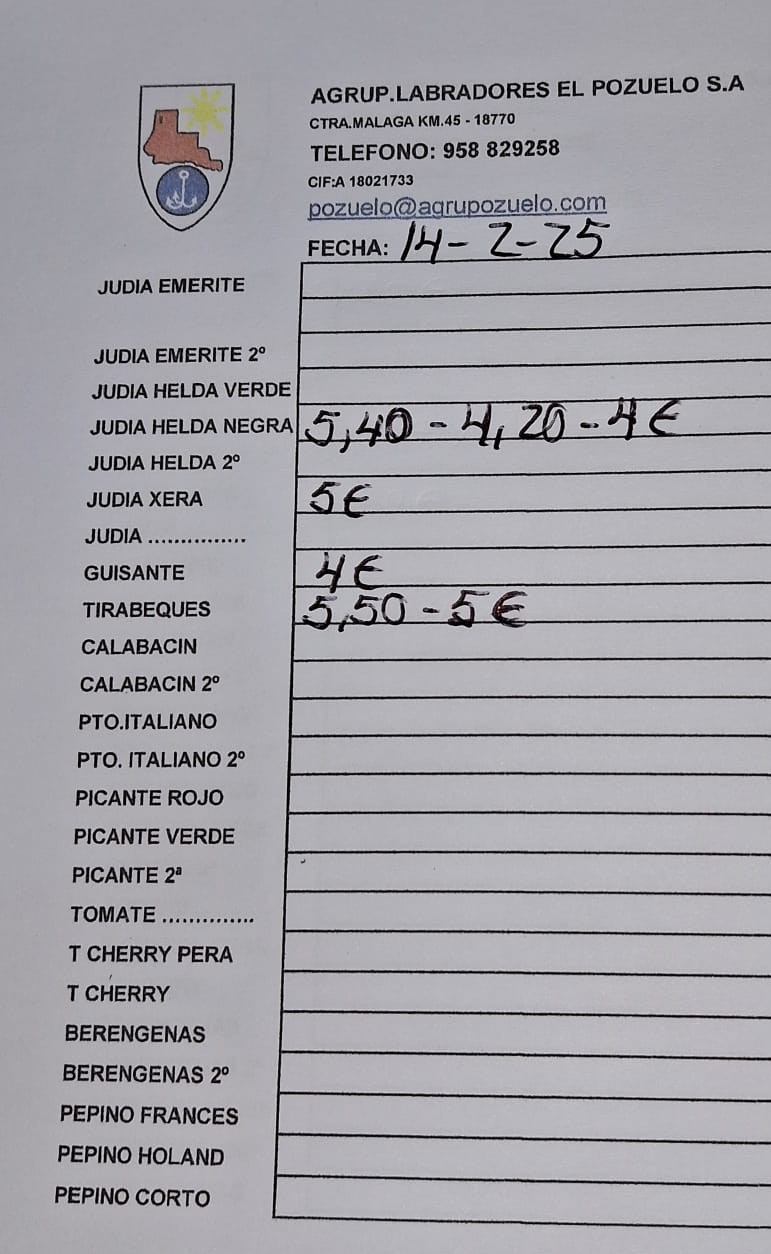 AGRUP.LABRADORES EL POZUELO S.A
CTRA.MALAGA KM.45 - 18770
TELEFONO: 958 829258
CIF:A 18021733
pozuelo@agrupozuelo.com
FECHA: 14-2-25
JUDIA EMERITE
JUDIA EMERITE 2º
JUDIA HELDA VERDE
JUDIA HELDA NEGRA 5,40-4,20-4€
JUDIA HELDA 2º
JUDIA XERA 5€
JUDIA ..............
GUISANTE 4€
TIRABEQUES 5,50-5€
CALABACIN
CALABACIN 2º
PTO.ITALIANO
PTO. ITALIANO 2º
PICANTE ROJO
PICANTE VERDE
PICANTE 2ª
TOMATE ..............
T CHERRY PERA
T CHERRY
BERENGENAS
BERENGENAS 2º
PEPINO FRANCES
PEPINO HOLAND
PEPINO CORTO